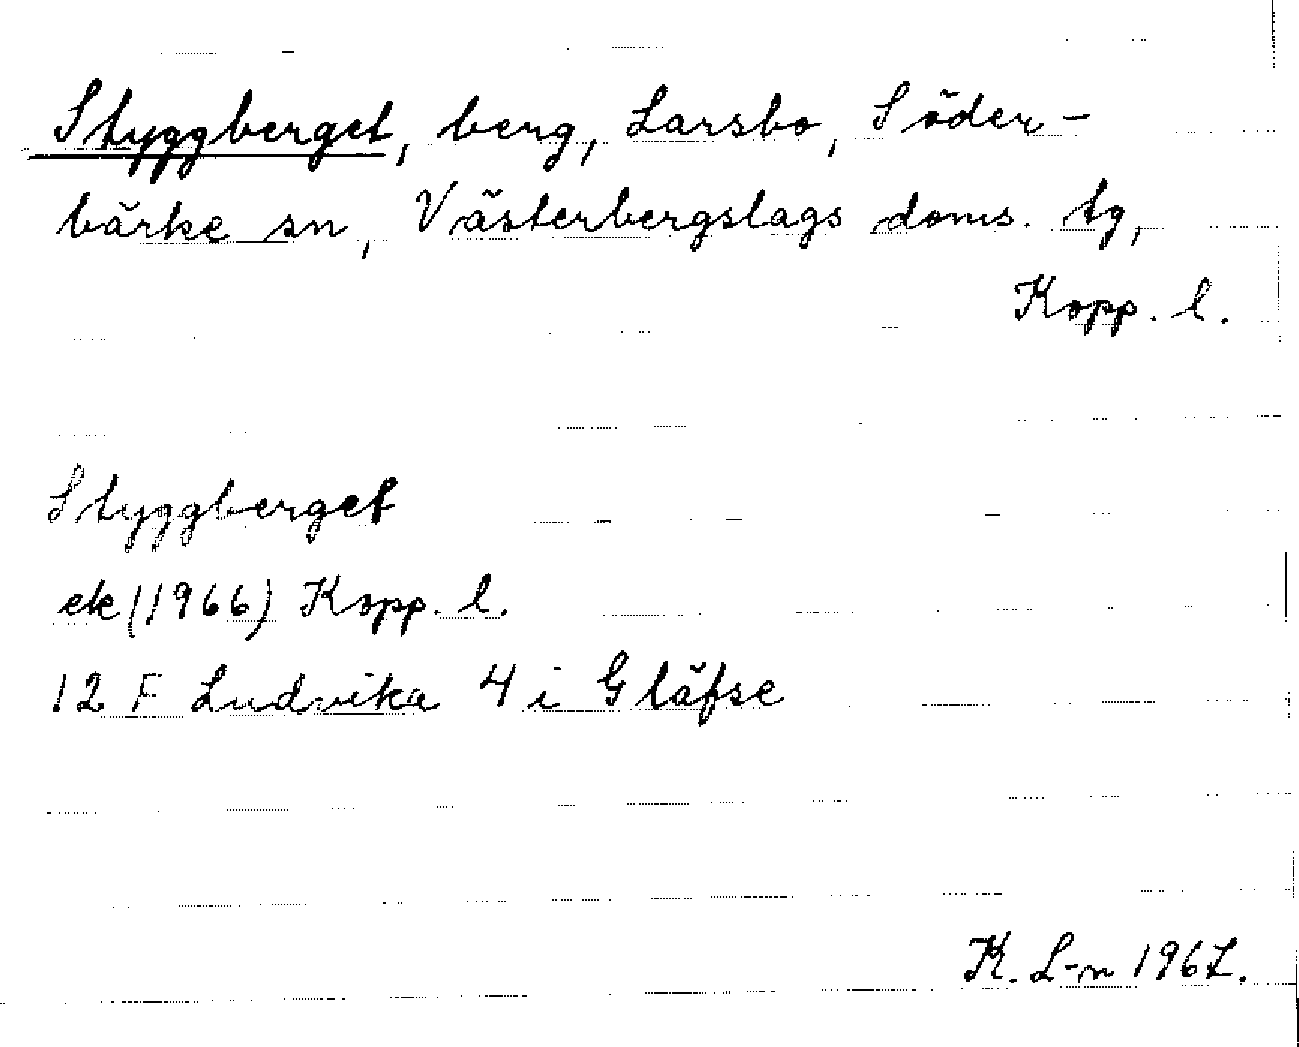 Styggberget, berg, Larsbo, Söder-
bärke sn, Västerbergslags doms. tg,
Kopp. l.
Styggberget
ek (1966) Kopp. l.
12 F Ludvika 4 i Gläfse
K. L-n 1967.